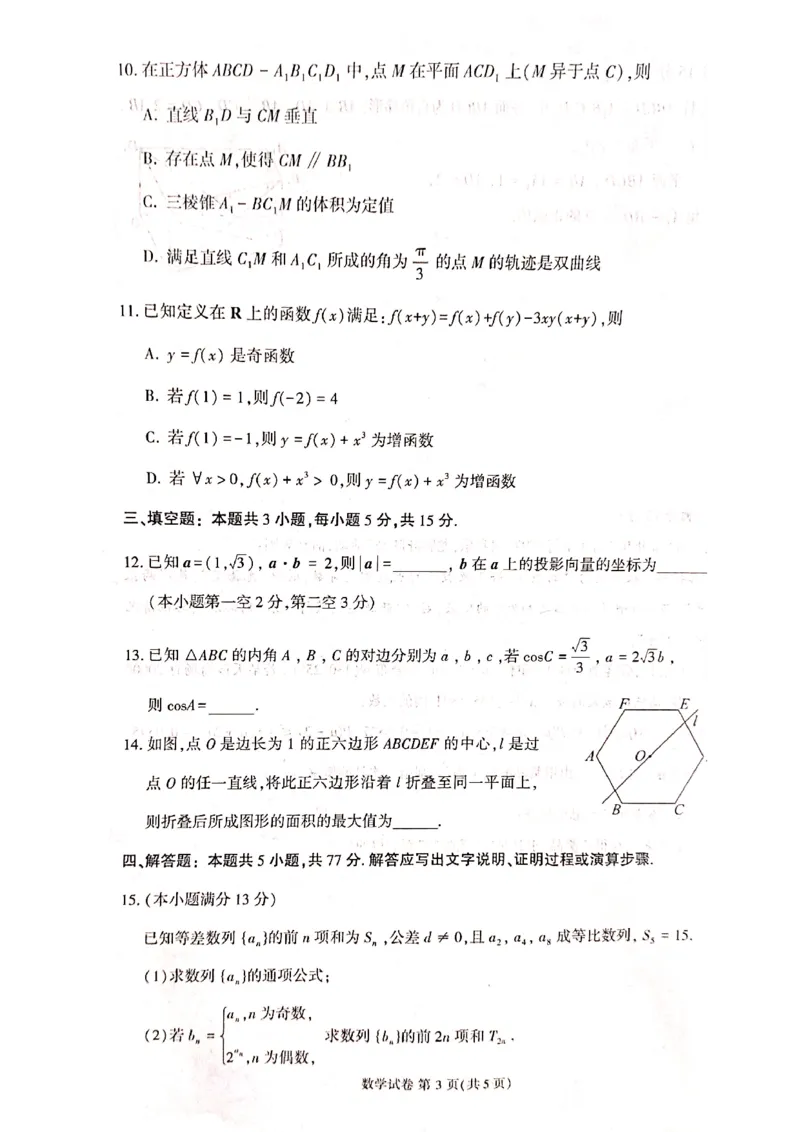 10.在正方体 ABCD - A₁B₁C₁D₁ 中,点 M 在平面 ACD₁ 上(M 异于点 C),则
A. 直线 B₁D 与 CM 垂直
B. 存在点 M,使得 CM ∥ BB₁
C. 三棱锥 A₁ - BC₁M 的体积为定值
D. 满足直线 C₁M 和 A₁C₁ 所成的角为 π/3 的点 M 的轨迹是双曲线
11.已知定义在 R 上的函数 f(x)满足:f(x+y)=f(x)+f(y)-3xy(x+y),则
A. y = f(x) 是奇函数
B. 若 f(1) = 1,则 f(-2) = 4
C. 若 f(1) = -1,则 y = f(x) + x³ 为增函数
D. 若 ∀x > 0, f(x) + x³ > 0,则 y = f(x) + x³ 为增函数
三、填空题：本题共 3 小题,每小题 5 分,共 15 分.
12.已知 a=(1,√3), a·b = 2,则|a|=______, b 在 a 上的投影向量的坐标为______
(本小题第一空 2 分,第二空 3 分)
13.已知 △ABC 的内角 A , B , C 的对边分别为 a , b , c ,若 cosC = √3/3 , a = 2√3b ,
则 cosA=______.
14.如图,点 O 是边长为 1 的正六边形 ABCDEF 的中心,l 是过
点 O 的任一直线,将此正六边形沿着 l 折叠至同一平面上,
则折叠后所成图形的面积的最大值为______.
F E
l
A O
B C
四、解答题：本题共 5 小题,共 77 分. 解答应写出文字说明、证明过程或演算步骤.
15.(本小题满分 13 分)
已知等差数列 {aₙ}的前 n 项和为 Sₙ ,公差 d ≠ 0,且 a₂, a₄, a₈ 成等比数列, S₅ = 15.
(1)求数列 {aₙ}的通项公式;
(2)若 bₙ = { aₙ,n 为奇数, 2^aₙ,n 为偶数, 求数列 {bₙ}的前 2n 项和 T₂ₙ .
数学试卷 第 3 页(共 5 页)